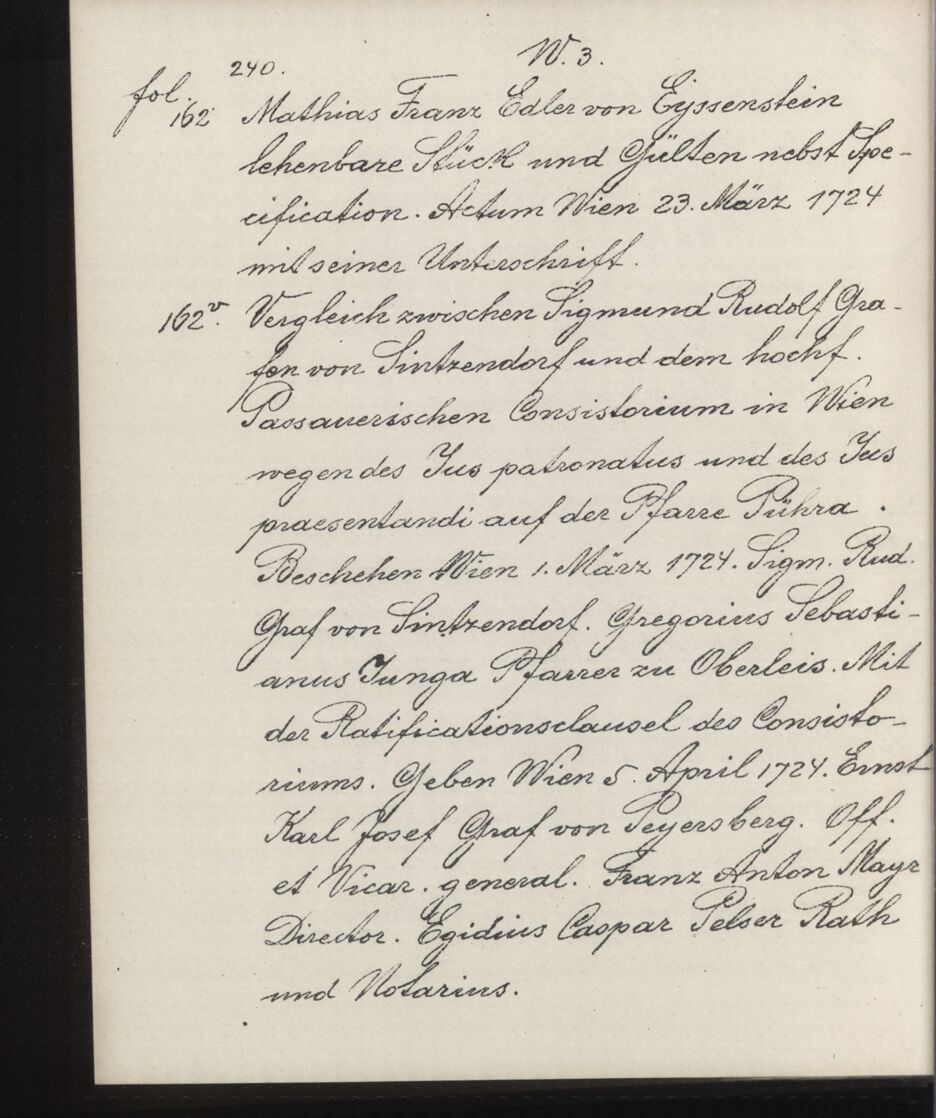 240. W. 3.
fol.
162 Mathias Franz Edler von Eyssenstein
lehenbare Stückh und Gülten nebst Spe-
cification. Actum Wien 23. März 1724
mit seiner Unterschrift.
162v. Vergleich zwischen Sigmund Rudolf Gra-
fen von Sintzendorf und dem hochf.
Passauerischen Consistorium in Wien
wegen des Jus patronatus und des Jus
praesentandi auf der Pfarre Pühra.
Beschehen Wien 1. März 1724. Sigm. Rud.
Graf von Sintzendorf. Gregorius Sebasti-
anus Junga Pfarrer zu Oberleis. Mit
der Ratificationsclausel des Consisto-
riums. Geben Wien 5. April 1724. Ernst
Karl Josef Graf von Peyersberg. Off.
et Vicar. general. Franz Anton Mayr
Director. Egidius Caspar Pelser Rath
und Notarius.